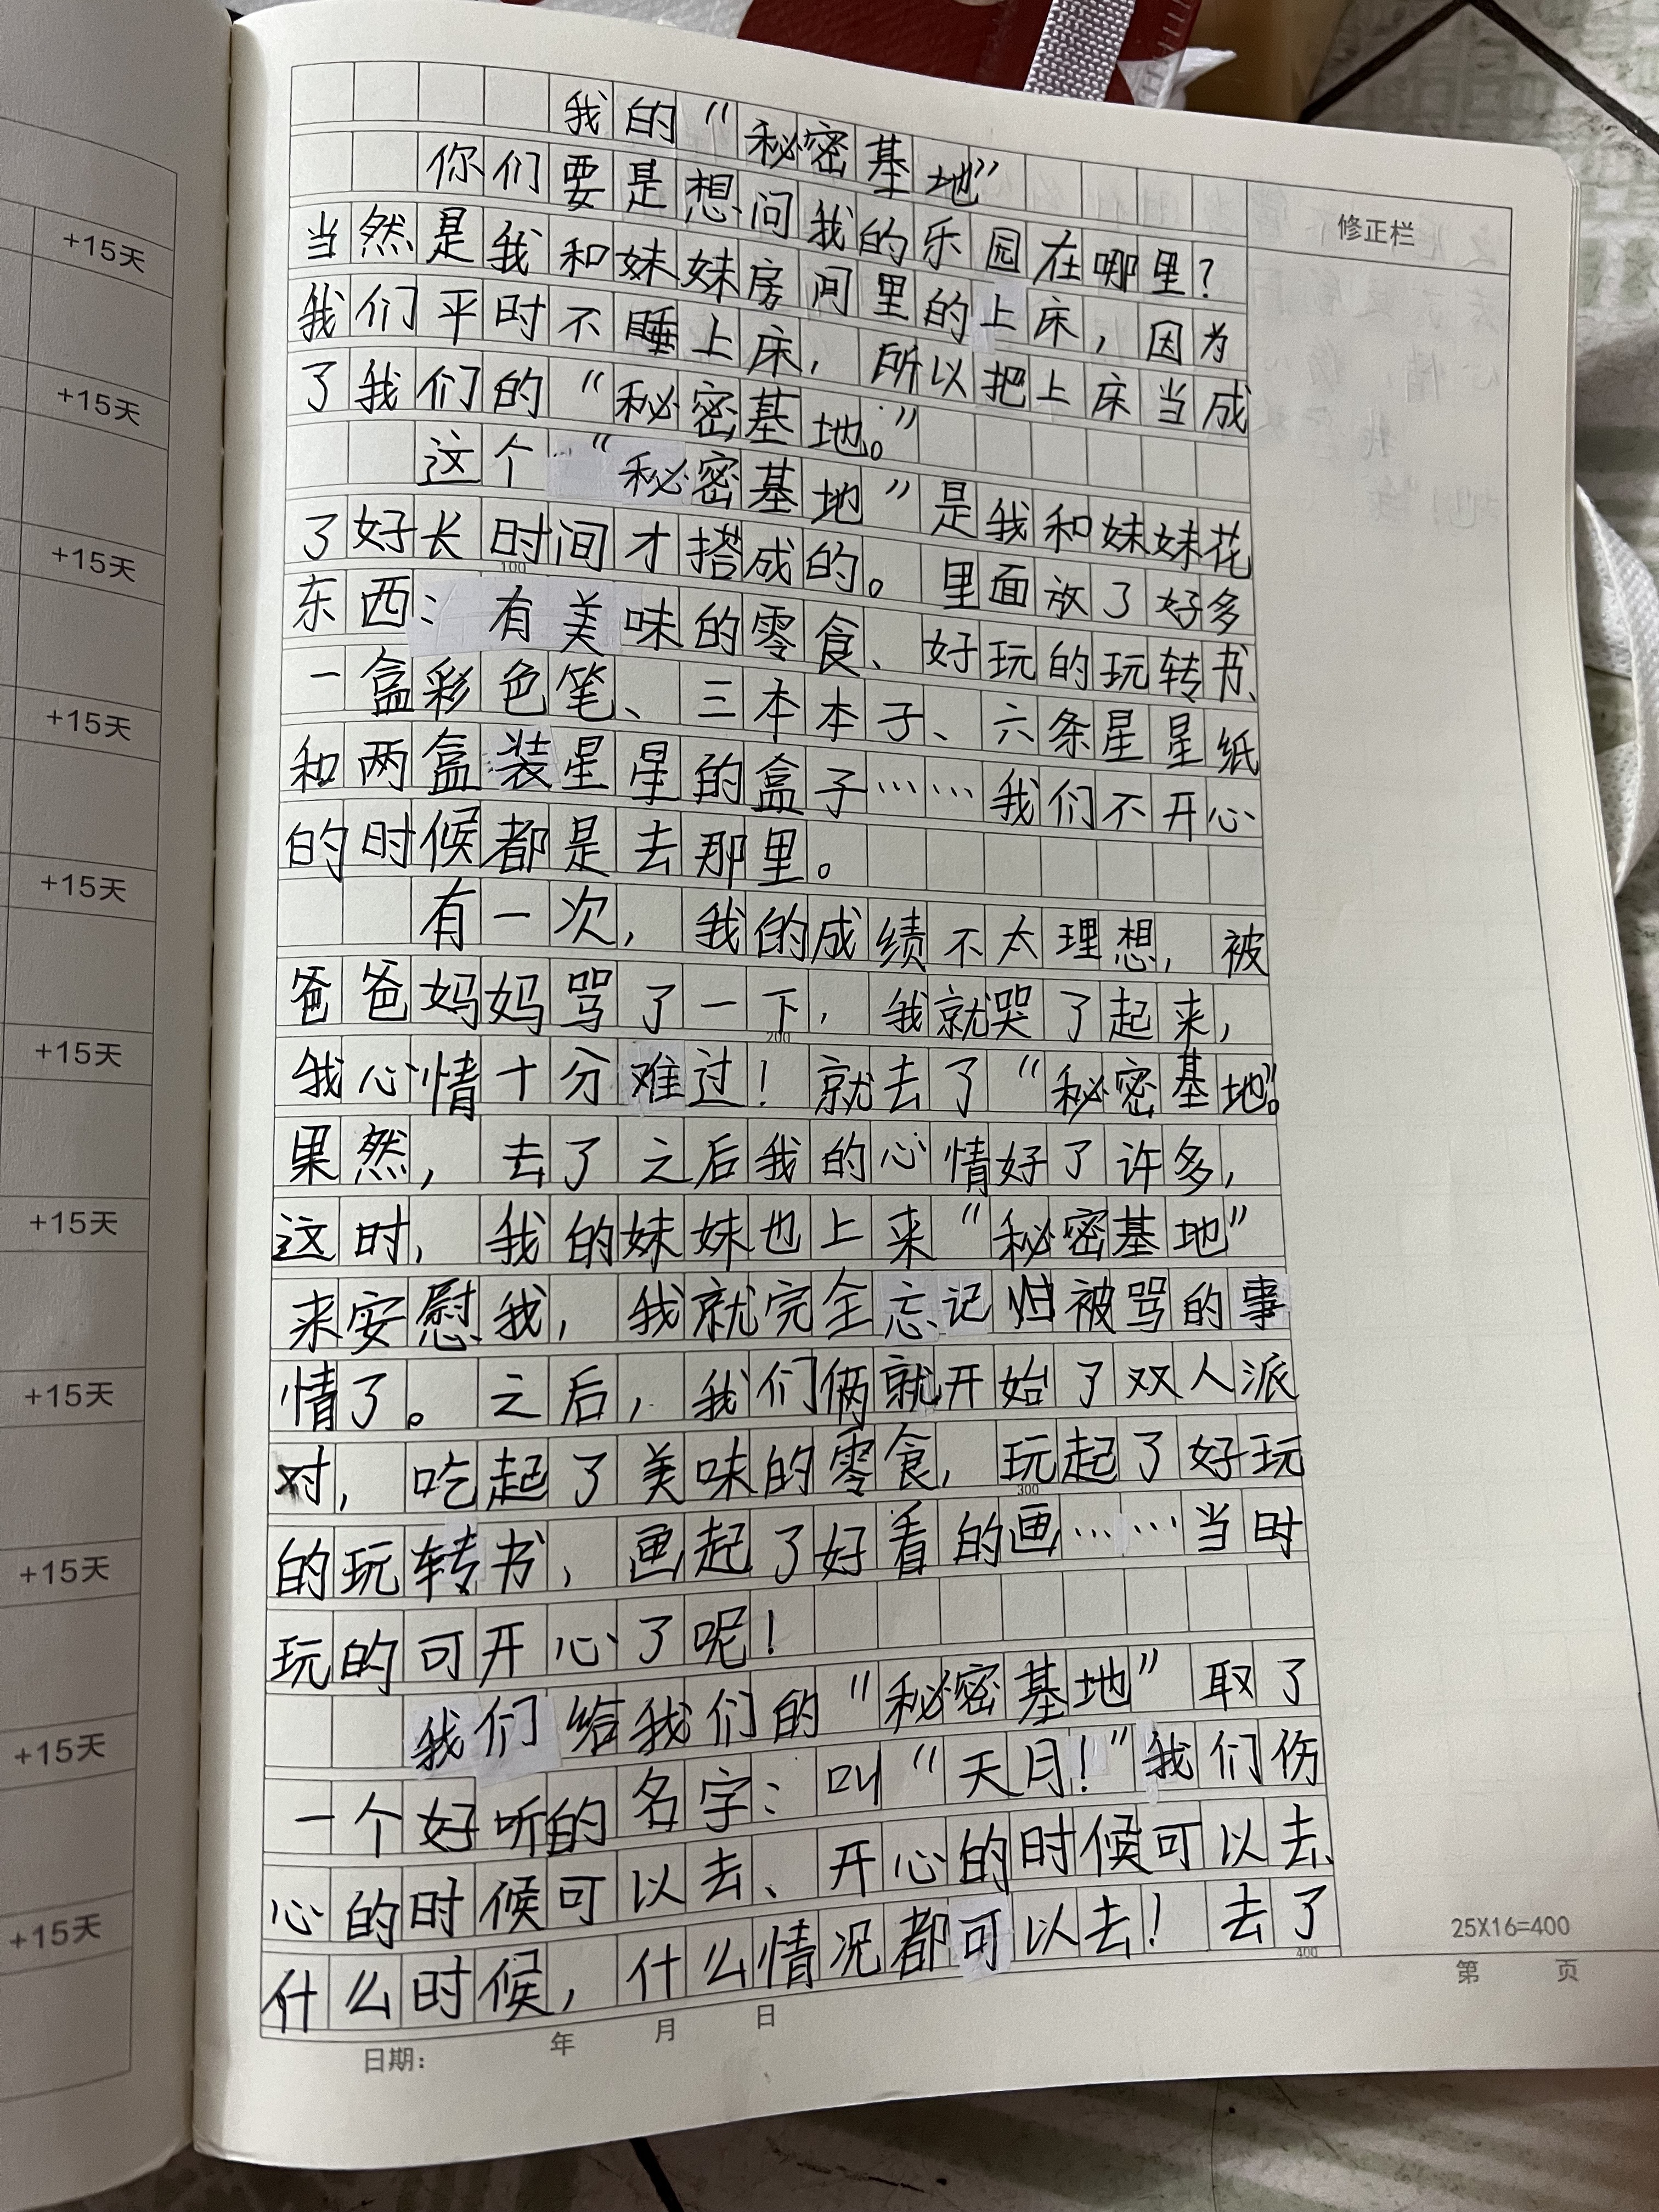 我的“秘密基地”
你们要是想问我的乐园在哪里？
当然是我和妹妹房间里的上床，因为
我们平时不睡上床，所以把上床当成
了我们的“秘密基地。”
这个“秘密基地”是我和妹妹花
了好长时间才搭成的。里面放了好多
东西：有美味的零食、好玩的玩转书、
一盒彩色笔、三本本子、六条星星纸
和两盒装星星的盒子……我们不开心
的时候都是去那里。
有一次，我的成绩不太理想，被
爸爸妈妈骂了一下，我就哭了起来，
我心情十分难过！就去了“秘密基地”。
果然，去了之后我的心情好了许多，
这时，我的妹妹也上来“秘密基地”
来安慰我，我就完全忘记归被骂的事
情了。之后，我们俩就开始了双人派
对，吃起了美味的零食，玩起了好玩
的玩转书，画起了好看的画……当时
玩的可开心了呢！
我们给我们的“秘密基地”取了
一个好听的名字：叫“天月！”我们伤
心的时候可以去、开心的时候可以去、
什么时候，什么情况都可以去！去了
修正栏
100
200
300
400
25X16=400
第 页
日期： 年 月 日
+15天
+15天
+15天
+15天
+15天
+15天
+15天
+15天
+15天
+15天
+15天